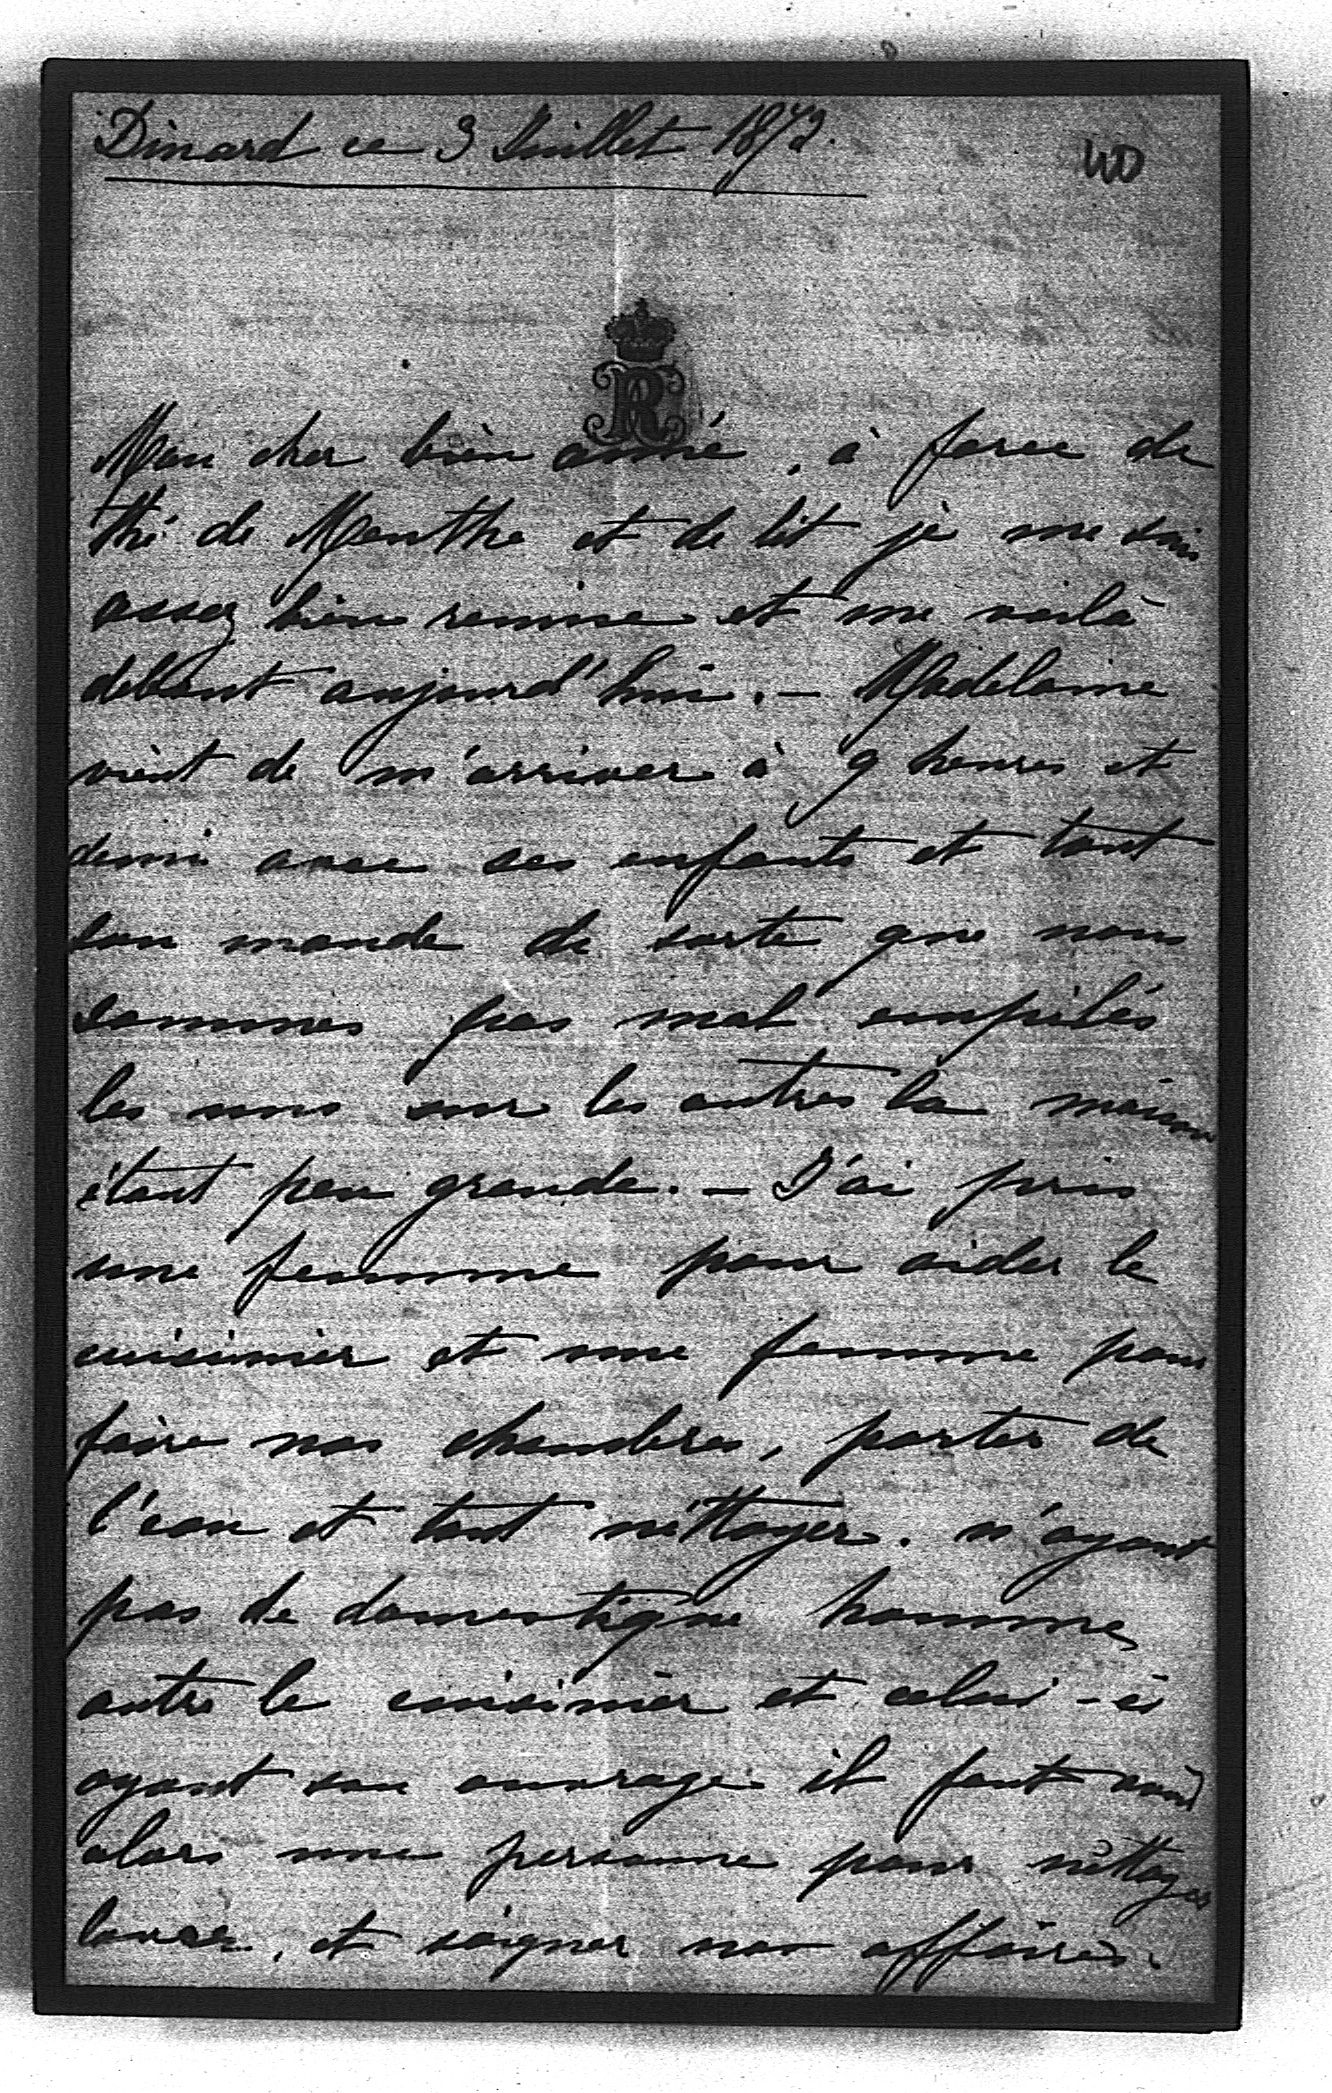 Dinard ce 3 Juillet 1873.
40
R
Mon cher bien aimé, à force de
thé de Menthe et de lit je me suis
assez bien remise et me voilà
debout aujourd'hui. — Madelaine
vient de m'arriver à 9 heures et
demi avec ses enfants et tout
son monde de sorte que nous
sommes pas mal empilés
les uns sur les autres la maison
étant peu grande. — J'ai pris
une femme pour aider le
cuisinier et une femme pour
faire nos chambres, porter de
l'eau et tout néttoyer. n'ayant
pas de domestique homme,
outre le cuisinier et celui-ci
ayant son ouvrage il faut
alors une personne pour néttoyer
laver, et soigner nos affaires.